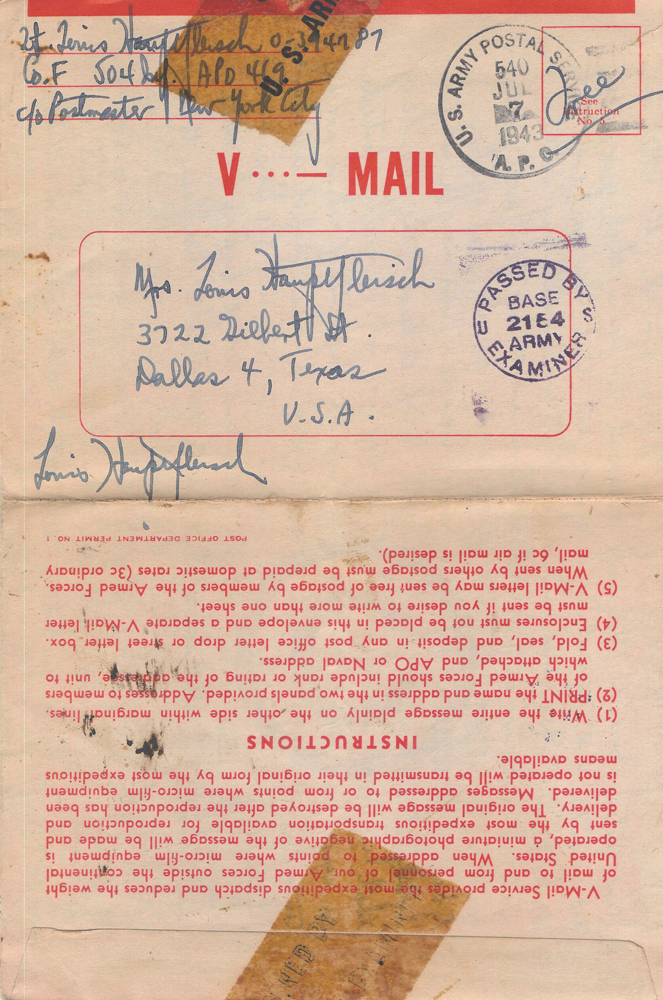 Lt. Louis Hauptfleisch
Co. F 504 APO 469
c/o Postmaster New York City
U.S. AR
U.S. ARMY POSTAL SERVICE
540
JUL
7
1943
A.P.O.
See
See
Instruction
No. 5
V···— MAIL
Mrs. Louis Hauptfleisch
3722 Gilbert St.
Dallas 4, Texas
U.S.A.
PASSED BY
BASE
2154
ARMY
EXAMINER
Louis Hauptfleisch
POST OFFICE DEPARTMENT PERMIT NO. 1
V-Mail Service provides the most expeditious dispatch and reduces the weight
of mail to and from personnel of our Armed Forces outside the continental
United States. When addressed to points where micro-film equipment is
operated, a miniature photographic negative of the message will be made and
sent by the most expeditious transportation available for reproduction and
delivery. The original message will be destroyed after the reproduction has been
delivered. Messages addressed to or from points where micro-film equipment
is not operated will be transmitted in their original form by the most expeditious
means available.
INSTRUCTIONS
(1) Write the entire message plainly on the other side within marginal lines.
(2) PRINT the name and address in the two panels provided. Addresses to members
of the Armed Forces should include rank or rating of the addressee, unit to
which attached, and APO or Naval address.
(3) Fold, seal, and deposit in any post office letter drop or street letter box.
(4) Enclosures must not be placed in this envelope and a separate V-Mail letter
must be sent if you desire to write more than one sheet.
(5) V-Mail letters may be sent free of postage by members of the Armed Forces.
When sent by others postage must be prepaid at domestic rates (3c ordinary
mail, 6c if air mail is desired).